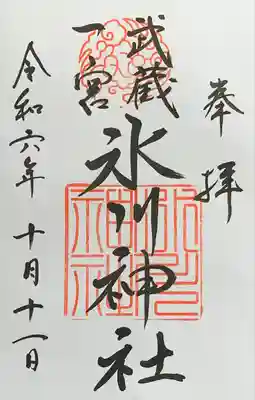 奉拝
武蔵
一宮
氷川神社
令和六年 十月十一日